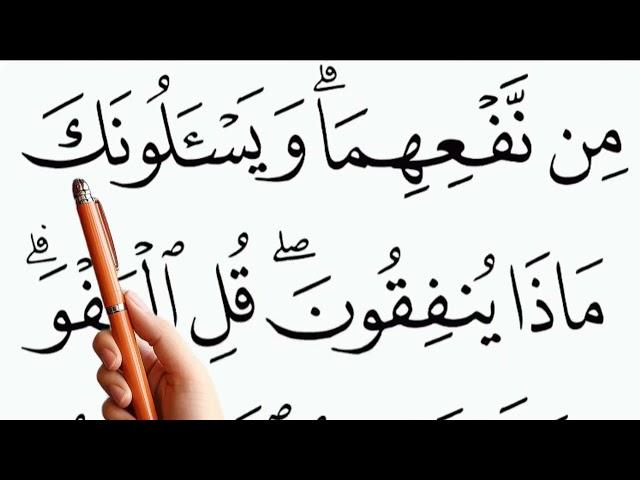 مِن نَّفْعِهِمَا ۗ وَيَسْـَٔلُونَكَ
مَاذَا يُنفِقُونَ ۖ قُلِ الْعَفْوَ ۗ